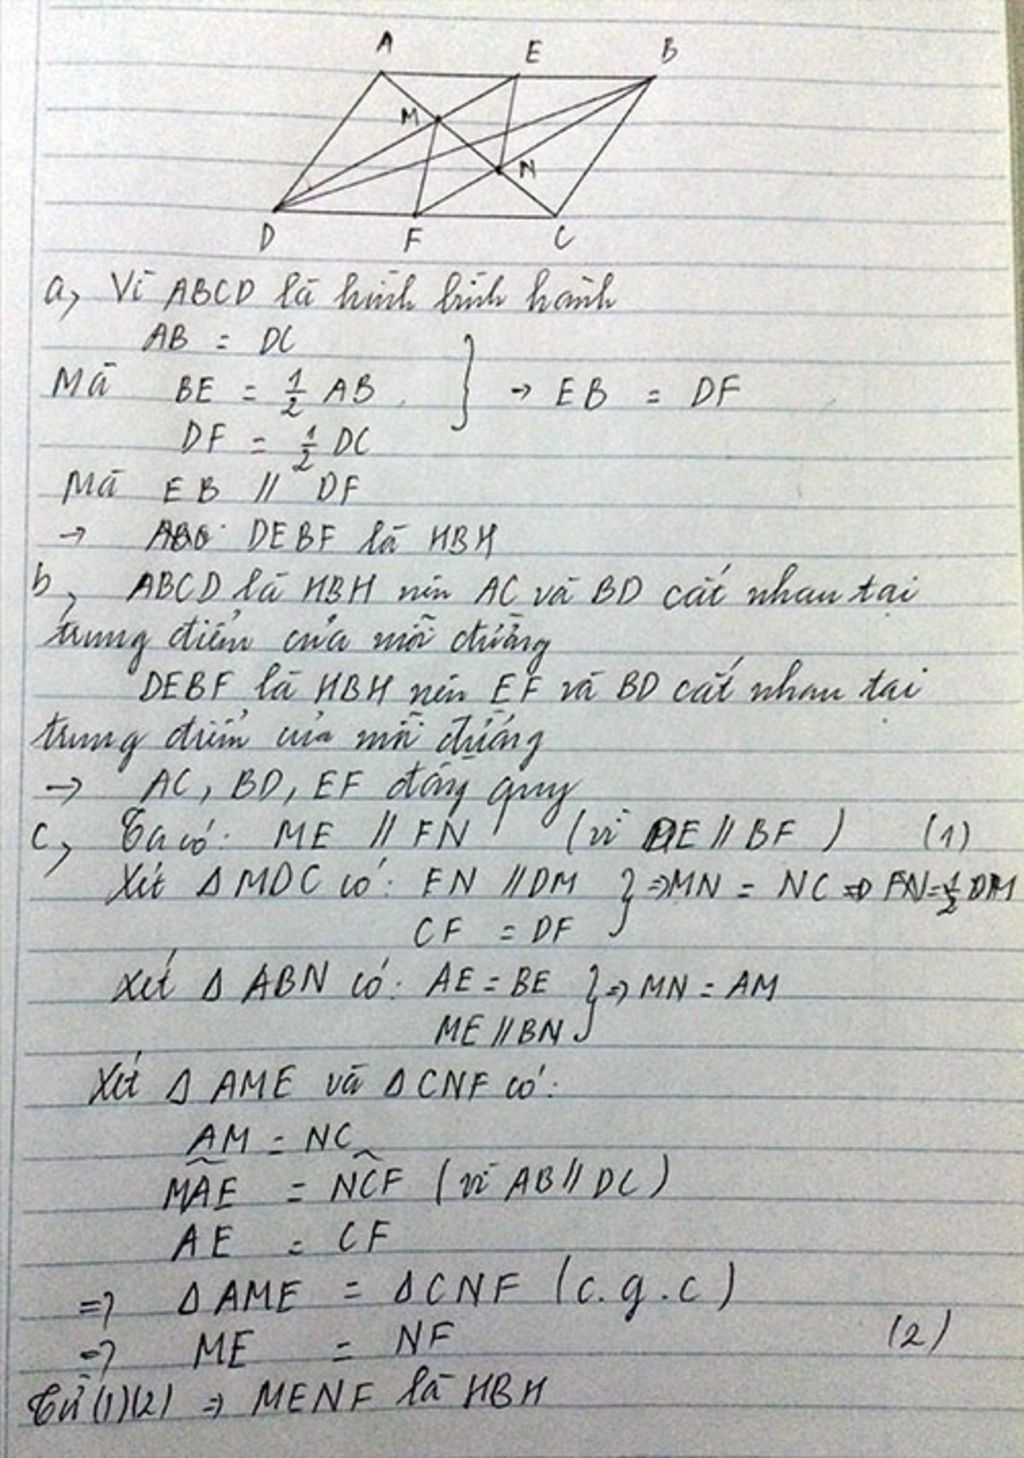 A E B
M
N
D F C
a, Vì ABCD là hình bình hành
AB = DC
Mà BE = 1/2 AB } → EB = DF
DF = 1/2 DC
Mà EB // DF
→ DEBF là HBH
b, ABCD là HBH nên AC và BD cắt nhau tại
trung điểm của mỗi đường
DEBF là HBH nên EF và BD cắt nhau tại
trung điểm của mỗi đường
→ AC, BD, EF đồng quy
c, Ta có: ME // FN (vì DE // BF) (1)
Xét Δ MDC có: FN // DM } ⇒ MN = NC ⇒ FN = 1/2 DM
CF = DF
Xét Δ ABN có: AE = BE } ⇒ MN = AM
ME // BN
Xét Δ AME và Δ CNF có:
AM = NC
MAE = NCF (vì AB // DC)
AE = CF
⇒ Δ AME = Δ CNF (c.g.c)
⇒ ME = NF (2)
Từ (1)(2) ⇒ MENF là HBH